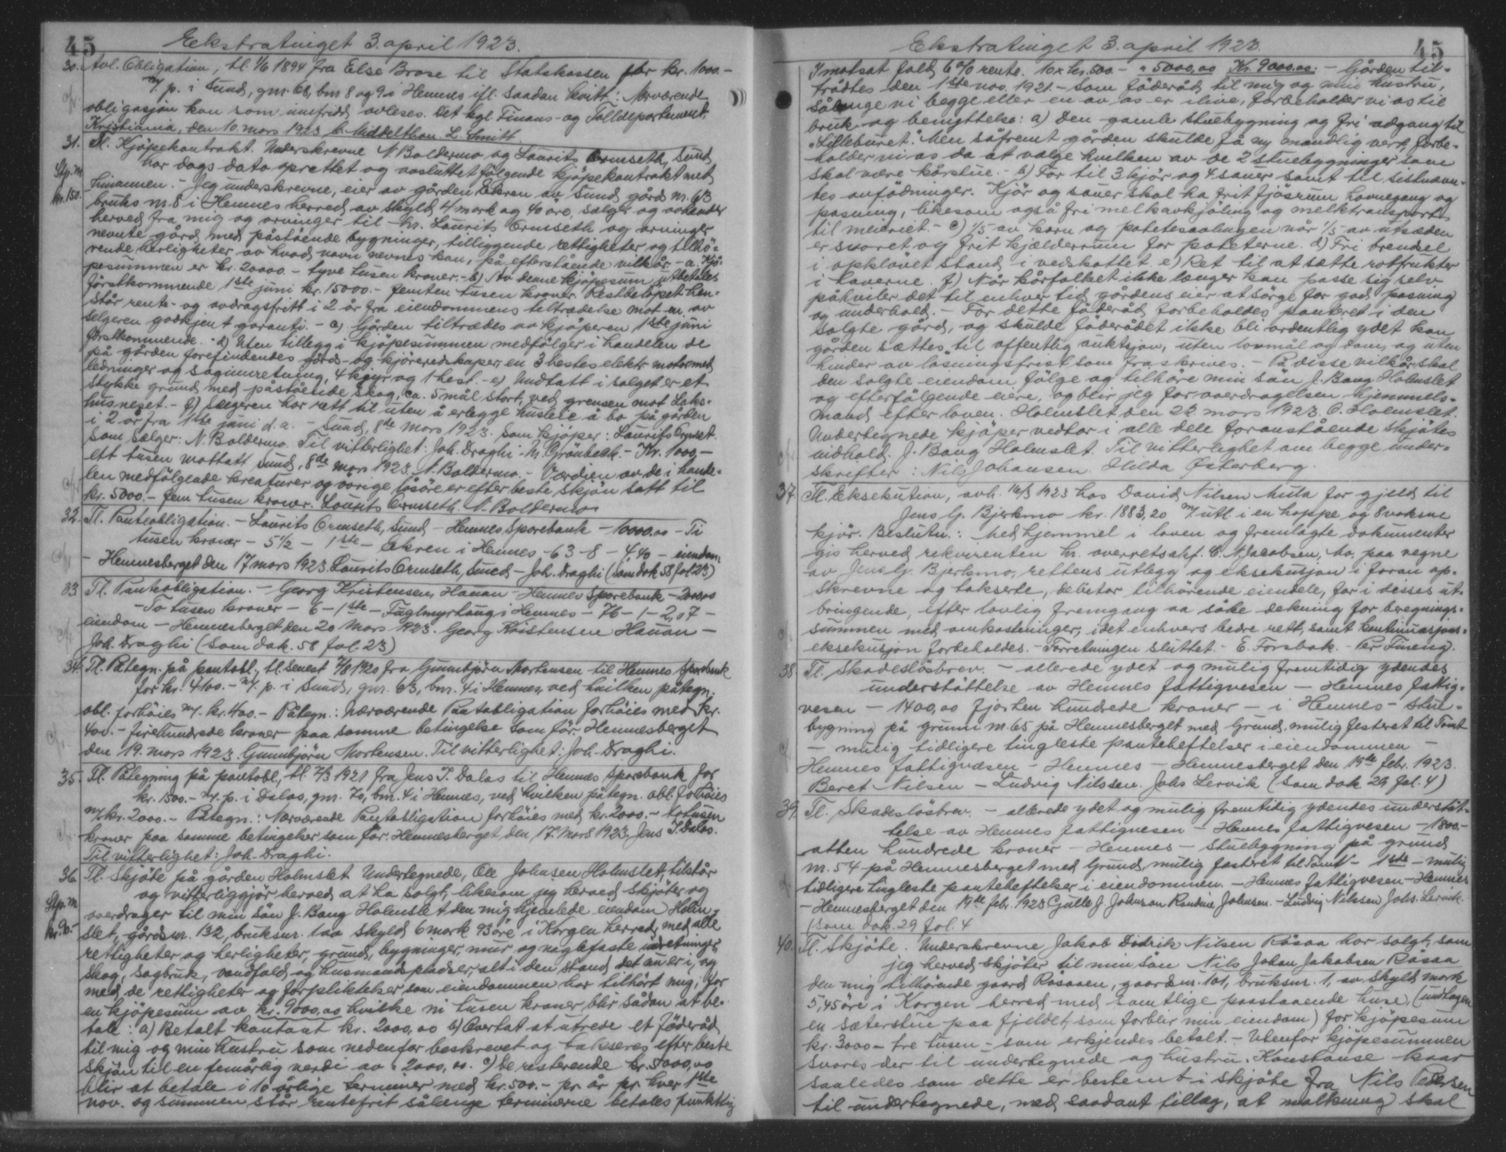 45
Ekstratinget 3. april 1923.
30. Avl. Obligation, tl. 1/6 1894 fra Else Brose til Statskassen for kr. 1000.-
m/. p. i Sund, gnr 63, bnr 8 og 9 a Hemnes ifl. saadan kvitt: Nærværende
obligasjon kan som innfridd avleses. Det kgl Finans- og Tolldepartement
Kristiania, den 10 mars 1923 L. Smitt
31. Tl. Kjöpekontrakt. Underskrevne N. Boldermo og Laurits Ormseth, Sund
har dags dato oprettet og avsluttet følgende kjöpekontrakt ved
Stp. m. kr. 150.
Jeg underskrevne, eier av gården Ekren av Sund gårds nr. 63
bruks nr. 8 i Hemnes herred av skyld 4 mark og 40 øre, sælger og avhænder
herved fra mig og arvinger til hr. Laurits Ormseth og arvinger
nevnte gård med påstående bygninger, tilliggende rettigheter og tilhö-
rende herligheter av hvad navn nevnes kan, på efterstående vilkår - a. Kjö-
pesummen er kr. 20000.- tyve tusen kroner.- b) Av denne kjöpesum utbetales
förstkommende 1ste juni kr. 15000.- femten tusen kroner. Restbelöpet hen-
står rente- og avdragsfritt i 2 år fra eiendommens tiltrædelse mot en av
selgeren godkjent garanti.- c) Gården tiltrædes av kjöperen 1ste juni
förstkommende. d) Uten tillegg i kjöpesummen medfölger i handelen de
på gården forefindendes gårds- og kjöreredskaper, en 3 hestes elektr. motor med
ledninger og saginnretning, 4 kjyr og 1 hest.- e) Undtatt i salget er et
stykke grund med påstående skog, ca. 5 mål stort, ved grensen mot Laks-
husneset.- f) Sælgeren har rett til uten å erlegge husleie å bo på gården
i 2 år fra 1ste juni d.a. - Sund, 8de Mars 1923. Som kjöper: Laurits Ormset.
Som sælger: N. Boldermo. Til vitterlighet: Joh. Draghi - N. Grönbech.- Kr. 1000.-
ett tusen mottatt Sund, 8de mars 1923 N. Boldermo.- Værdien av de i hande-
len medfölgende kreaturer og övrige lösöre er efter beste skjön satt til
kr. 5000.- fem tusen kroner. Laurits Ormseth N. Boldermo
32. Tl. Panteobligation.- Laurits Ormseth, Sund - Hemnes Sparebank - 10000,00 - Ti
tusen kroner - 5 1/2 - 1ste - Ekren i Hemnes - 63 - 8 - 4,40 - eiendom
- Hemnesberget den 17 mars 1923. Laurits Ormseth, Sund - Joh. Draghi (som dok 58 fol 23)
33. Tl. Panteobligation.- Georg Kristensen, Hauan - Hemnes Sparebank - 2000,00
- To tusen kroner - 6 - 1ste - Fuglmyrhaug i Hemnes - 76 - 1 - 2,07 -
eiendom - Hemnesberget den 20 Mars 1923. Georg Kristensen Hauan -
Joh. Draghi (som dok. 58 fol 23)
34. Tl. Påtegn. på pantobl., tl. senest 7/8 1920 fra Gunnbjörn Mortensen til Hemnes Sparebank
for kr. 4400.- m/. p. i Sund, gnr. 63, bnr. 4 i Hemnes, ved hvilken påtegn.
obl. forhöies m/. kr. 400.- Påtegn: Nærværende Pantobligation forhöies med kr.
400.- firehundrede kroner - paa samme betingelse som för. Hemnesberget
den 19. mars 1923. Gunnbjörn Mortensen. Til vitterlighet: Joh. Draghi.
35. Tl. Påtegning på pantobl., tl. 7/3 1921 fra Jens P. Dalos til Hemnes Sparebank for
kr. 1500.- m/. p. i Dalos, gnr. 70, bnr. 4 i Hemnes, ved hvilken påtegn. obl forhöies
m/ kr. 2000.- Påtegn.: Nærværende Pantobligation forhöies med kr. 2000.- totusen
kroner paa samme betingelser som för. Hemnesberget den 17. Mars 1923. Jens P. Dalos.
Til vitterlighet: Joh. Draghi.
36. Tl. Skjöte på gården Holmslet. Undertegnede, Ole Johnsen Holmslet, tilstår
og vitterliggjör herved at ha solgt, likesom jeg herved skjöter og
Stp. m. kr. 90.-
overdrager til min sön J. Bang Holmslet den mig hjemlede eiendom Holm-
slet, gårdsnr. 132, bruksnr. 1aa skyld 6 mark 93 öre i Korgen herred, med alle
rettigheter og herligheter, grund, bygninger, mur og naglefaste indretninger,
skog, sagbruk, vandfald og husmandspladser, alt i den stand det nu er i, og
med de rettigheter og forpliktelser som eiendommen har tilhört mig, for
en kjöpesum av kr. 9000,00 hvilke ni tusen kroner blir sådan at be-
tale: a) Betalt kontant kr. 2000,00 b) Overtat at utrede et föderåd
til mig og min hustru som nedenfor beskrevet og takseres efter beste
skjön til en femårlig verdi av kr. 2000,00. c) De resterende kr. 5000,00
blir at betale i 10 årlige terminer med kr. 500.- pr. år pr. hver 1ste
nov. og summen står rentefrit sålenge terminerne betales punktlig
45
Ekstratinget 3. april 1923.
I motsat fald 6 % rente. 10 x kr. 500.- " 5000,00 Kr. 9000,00. - Gården til-
trådtes den 1ste nov. 1921.- Som föderåd til mig og min hustru,
sålænge vi begge eller en av os er ilive, forbeholder vi os til
bruk og benyttelse: a) Den gamle stuebygning og fri adgang til
"Lilleburet". Men såfremt gården skulde få ny mandlig vert, forbe-
holder vi os da at valge hvilken av de 2 stuebygninger som
skal være kårstue.- b) For til 3 kjör og 4 sauer samt til sistnævn-
tes avfödninger. Kjör og sauer skal ha frit fjösrum havnegang og
pasning, likesom også fri melkavkjöling og melktransport
til meieriet.- c) 1/5 av korn og potetesavlingen når 1/5 av utsæden
er svoret og frit kjælderrum for poteterne. d) Fri brendsel
i opklövet stand i vedskottet e) Ret til at sætte rotfrukter
i haverne f) Når kårfolket ikke længer kan passe sig selv
påhviler det til enhver tid gårdens eier at sörge for god pasning
og underhold.- For dette föderåd forbeholdes panteret i den
solgte gård, og skulde föderådet ikke bli ordentlig ydet kan
gården sættes til offentlig auktion, uten lovmål og dom, og uten
hinder av lösningsfrist som fraskrives.- På disse vilkår skal
den solgte eiendom fölge og tilhöre min sön J. Bang Holmslet
og efterfölgende eiere, og blir jeg for overdragelsen hjemmels-
mand efter loven. Holmslet den 23 mars 1923. O. Holmslet.
Undertegnede kjöper vedtar i alle dele foranstående skjötes
indhold. J. Bang Holmslet. Til vitterlighet om begge under-
skrifter: Nils Johansen. Hilda Österberg.
37. Tl. Eksekution, avh. 16/3 1923 hos David Nilsen Mula for gjeld til
Jens G. Bjerkmo kr. 1883,20 m/ utl i en hoppe og 8 voksne
kjör. Beslutn.: Med hjemmel i loven og fremlagte dokumenter
gis herved rekvirenten hr. overretssakf. C. N. Jakobsen, Mo, paa vegne
av Jens G. Bjerkmo, rettens utlegg og eksekusjon i foran op-
skrevne og takserte, debitor tilhörende eiendele, for i disses ut-
bringende, efter lovlig fremgang aa söke dekning for beregnings-
summen med omkostninger, i det enhvers bedre rett, samt kontinuasjons-
eksekusjon forbeholdes.- Forretningen sluttet - E. Forsbak. Per Tuneng.
38. Tl. Skadeslösbrev.- allerede ydet og mulig fremtidig ydendes
understöttelse av Hemnes fattigvesen - Hemnes fattig-
vesen - 1400,00 fjorten hundrede kroner - i Hemnes - Stue-
bygning på grund nr 65 på Hemnesberget med grund, mulig festret til Tomt
- mulig tidligere tinglæste panteheftelser i eiendommen -
Hemnes fattigvæsen - Hemnes - Hemnesberget den 14de febr. 1923.
Beret Nilsen - Ludvig Nilssen. Johs Lervik (som dok 29 fol. 4)
39. Tl. Skadeslösbrev.- allerede ydet og mulig fremtidig ydendes understöt-
telse av Hemnes fattigvesen - Hemnes fattigvesen - 1800.-
atten hundrede kroner - Hemnes - Stuebygning på grund
nr. 54 på Hemnesberget med grund, mulig festret til Tomt - 1ste - mulig
tidligere tinglæste panteheftelser i eiendommen.- Hemnes fattigvesen - Hemnes
- Hemnesberget den 14de febr. 1923 J. Johnsen Johnsen.- Ludvig Nilssen Johs. Lervik
(som dok. 29 fol. 4
40. Tl. Skjöte. Underskrevne Jakob Didrik Nilsen Råsaa har solgt, som
jeg herved skjöter til min sön Nils Johan Jakobsen Råsaa
den mig tilhörende gaard Råsaaen, gaardsnr. 101, bruksnr. 1, av skyld mark
5,45 öre i Korgen herred med samtlige paastaaende huse, (undtagen
en sæterstue paa fjeldet, som forblir min eiendom) for kjöpesum
kr. 3000.- tre tusen - som erkjendes betalt.- Utenfor kjöpesummen
svares der til undertegnede og hustru Konstanse kaar
saaledes som dette er bestemt i skjöte fra Nils Pedersen
til undertegnede, med saadant tillæg, at malkning skal